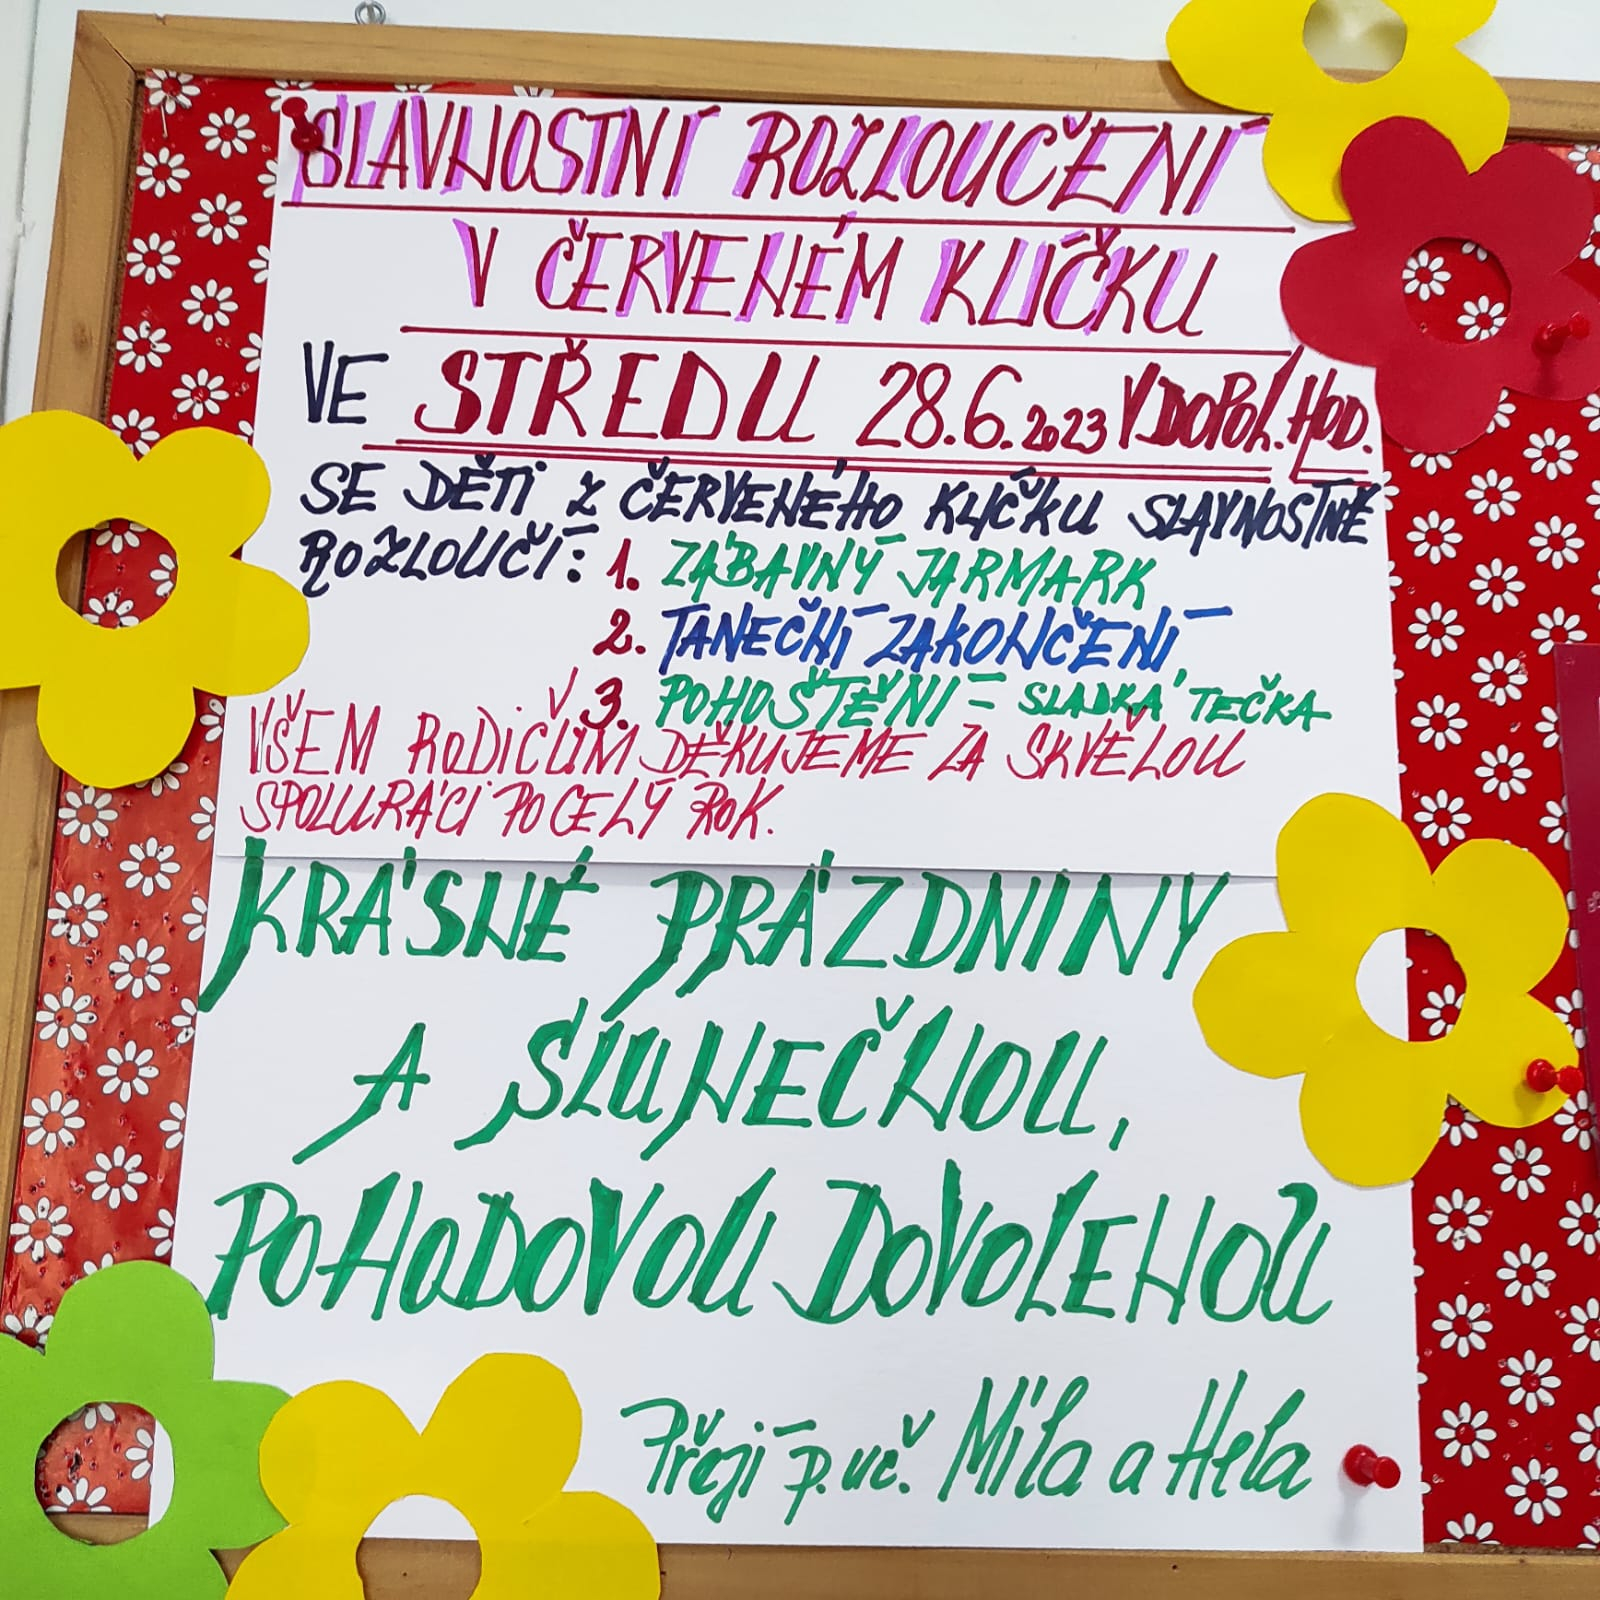 SLAVNOSTNÍ ROZLOUČENÍ
V ČERVENÉM KLÍČKU
VE STŘEDU 28.6.2023 V DOPOL. HOD.
SE DĚTI Z ČERVENÉHO KLÍČKU SLAVNOSTNĚ
ROZLOUČÍ: 1. ZÁBAVNÝ JARMARK
2. TANEČNÍ ZAKONČENÍ
3. POHOŠTĚNÍ - SLADKÁ TEČKA
VŠEM RODIČŮM DĚKUJEME ZA SKVĚLOU
SPOLUPRÁCI PO CELÝ ROK.
KRÁSNÉ PRÁZDNINY
A SLUNEČNOU,
POHODOVOU DOVOLENOU
Přejí p. uč. Míla a Hela